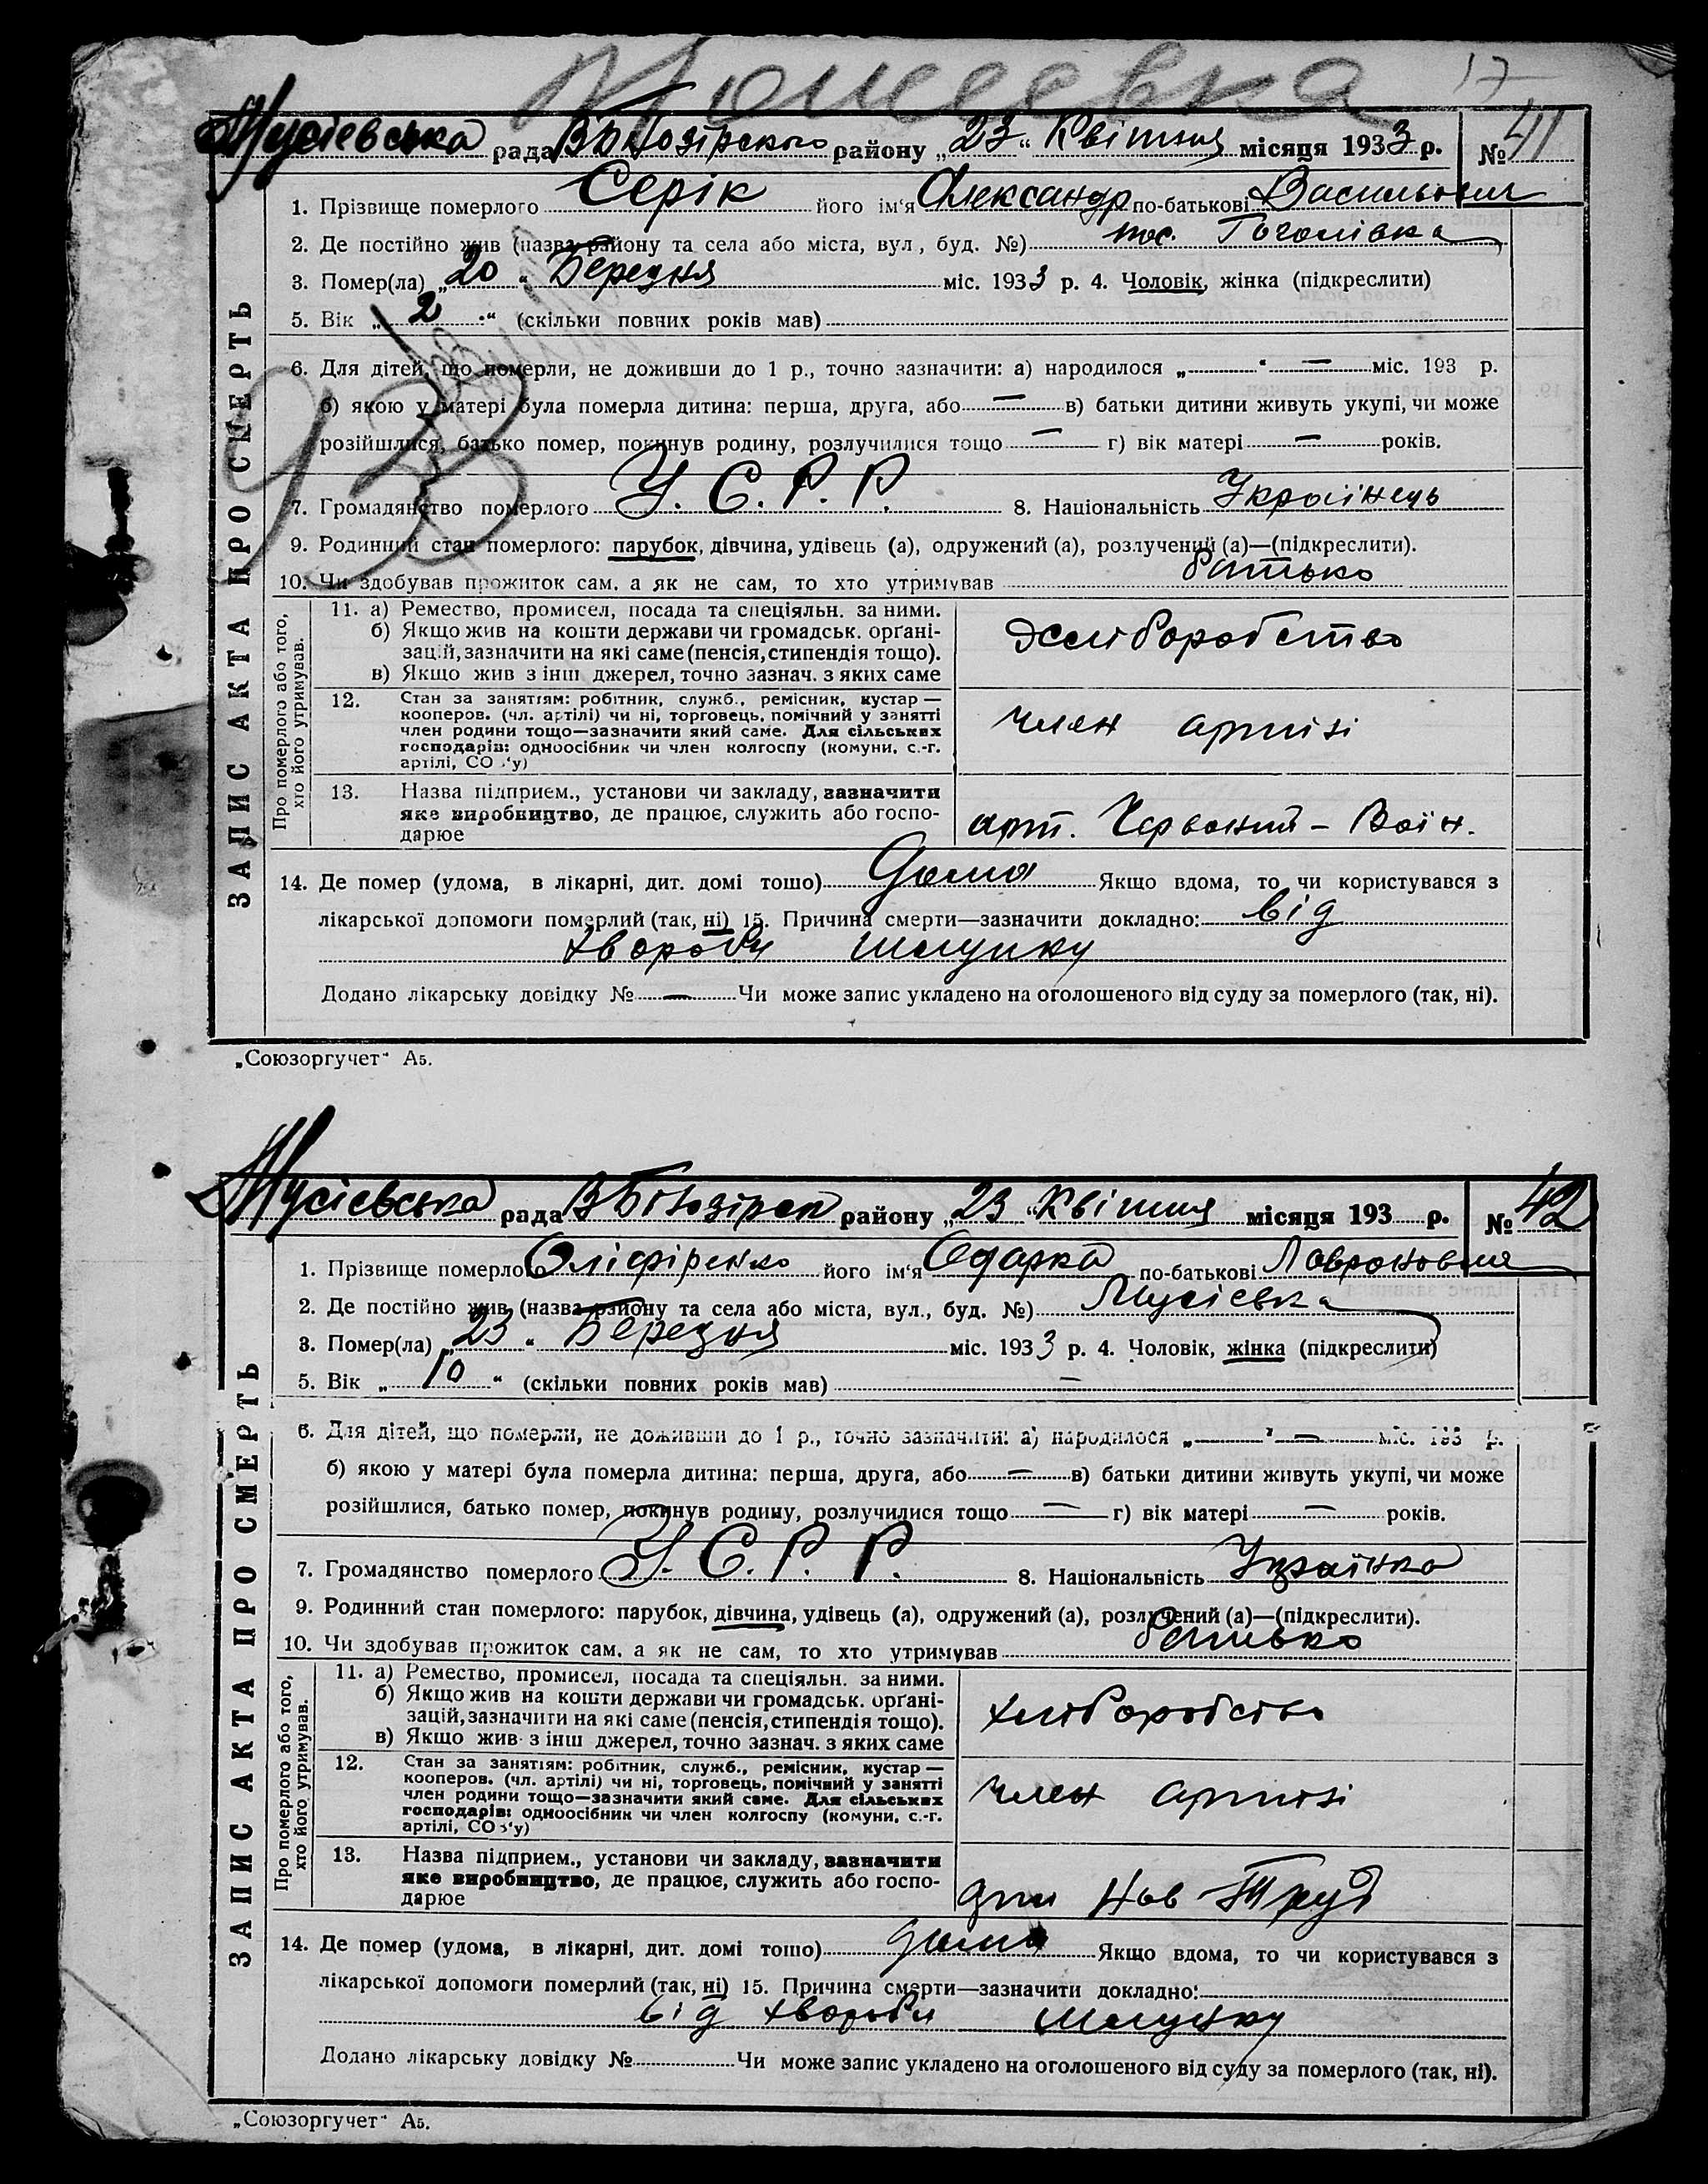 Моисеевка 17
Мусіевська рада ВБілозірського району „23“ Квітня місяця 1933 р. № 41
1. Прізвище померлого Серік його ім‘я Олександр по-батькові Васильович
2. Де постійно жив (назва району та села або міста, вул, буд. №) пос. Гоголівка
3. Помер(ла) „20“ Березня міс. 1933 р. 4. Чоловік, жінка (підкреслити)
5. Вік „2“ (скільки повних років мав)
6. Для дітей, що померли, не доживши до 1 р., точно зазначити: а) народилося „ “ — міс. 193 р.
б) якою у матері була померла дитина: перша, друга, або — в) батьки дитини живуть укупі, чи може
розійшлися, батько помер, покинув родину, розлучилися тощо — г) вік матері — років.
933
7. Громадянство померлого У. С. Р. Р. 8. Національність Украінець
9. Родинний стан померлого: парубок, дівчина, удівець (а), одружений (а), розлучений (а)—(підкреслити).
10. Чи здобував прожиток сам, а як не сам, то хто утримував батько
ЗАПИС АКТА ПРО СМЕРТЬ
Про померлого або того, хто його утримував.
11. а) Ремество, промисел, посада та спеціяльн. за ними.
б) Якщо жив на кошти держави чи громадськ. орґані-
зацій, зазначити на які саме (пенсія, стипендія тощо).
в) Якщо жив з інш джерел, точно зазнач. з яких саме
хліборобство
12. Стан за занятіям: робітник, служб., ремісник, кустар —
кооперов. (чл. артілі) чи ні, торговець, помічний у занятті
член родини тощо—зазначити який саме. Для сільських
господарів: одноосібник чи член колгоспу (комуни, с.-г.
артілі, СО з‘у)
член артілі
13. Назва підприєм., установи чи закладу, зазначити
яке виробництво, де працює, служить або госпо-
дарює
арт. Червоний - Воін.
14. Де помер (удома, в лікарні, дит. домі тошо) дома Якщо вдома, то чи користувався з
лікарської допомоги померлий (так, ні) 15. Причина смерти—зазначити докладно: від
хвороби шлунку
Додано лікарську довідку № — Чи може запис укладено на оголошеного від суду за померлого (так, ні).
„Союзоргучет“ А5.
Мусіевська рада ВБілозірск району „23“ Квітня місяця 193 р. № 42
1. Прізвище померлого Оліфіренко його ім‘я Одарка по-батькові Лавроновна
2. Де постійно жив (назва району та села або міста, вул., буд. №) Мусіевка
3. Помер(ла) „23“ Березня міс. 1933 р. 4. Чоловік, жінка (підкреслити)
5. Вік „10“ (скільки повних років мав) —
6. Для дітей, що померли, не доживши до 1 р., точно зазначити: а) народилося „ “ — міс. 193 р.
б) якою у матері була померла дитина: перша, друга, або — в) батьки дитини живуть укупі, чи може
розійшлися, батько помер, покинув родину, розлучилися тощо — г) вік матері — років.
7. Громадянство померлого У. С. Р. Р. 8. Національність Украінка
9. Родинний стан померлого: парубок, дівчина, удівець (а), одружений (а), розлучений (а)—(підкреслити).
10. Чи здобував прожиток сам, а як не сам, то хто утримував батько
ЗАПИС АКТА ПРО СМЕРТЬ
Про померлого або того, хто його утримував.
11. а) Ремество, промисел, посада та спеціяльн. за ними.
б) Якщо жив на кошти держави чи громадськ. орґані-
зацій, зазначити на які саме (пенсія, стипендія тощо).
в) Якщо жив з інш джерел, точно зазнач. з яких саме
хліборобство
12. Стан за занятіям: робітник, служб., ремісник, кустар —
кооперов. (чл. артілі) чи ні, торговець, помічний у занятті
член родини тощо—зазначити який саме. Для сільських
господарів: одноосібник чи член колгоспу (комуни, с.-г.
артілі, СО з‘у)
член артілі
13. Назва підприєм., установи чи закладу, зазначити
яке виробництво, де працює, служить або госпо-
дарює
арт Нов Труд
14. Де помер (удома, в лікарні, дит. домі тошо) дома Якщо вдома, то чи користувався з
лікарської допомоги померлий (так, ні) 15. Причина смерти—зазначити докладно:
від хвороби шлунку
Додано лікарську довідку № Чи може запис укладено на оголошеного від суду за померлого (так, ні).
„Союзоргучет“ А5.